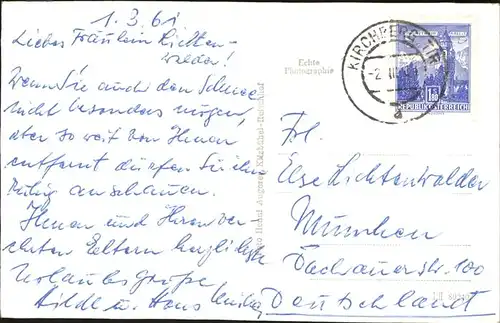 1.3.61
Liebes Fräulein Lichten-
walder!
Wenn Sie auch den Schnee
nicht besonders mögen,
aber so weit von Ihnen
entfernt dürfen Sie ihn
ruhig anschauen.
Ihnen und Ihren ver-
ehrten Eltern herzliche
Urlaubsgrüße
Hilde u. Hans
Echte
Photographie
KIRCHBERG, TIR
-2.III.61
a
1.80
REPUBLIK ÖSTERREICH
Frl.
Else Lichtenwalder
München
Dachauerstr. 100
Deutschland